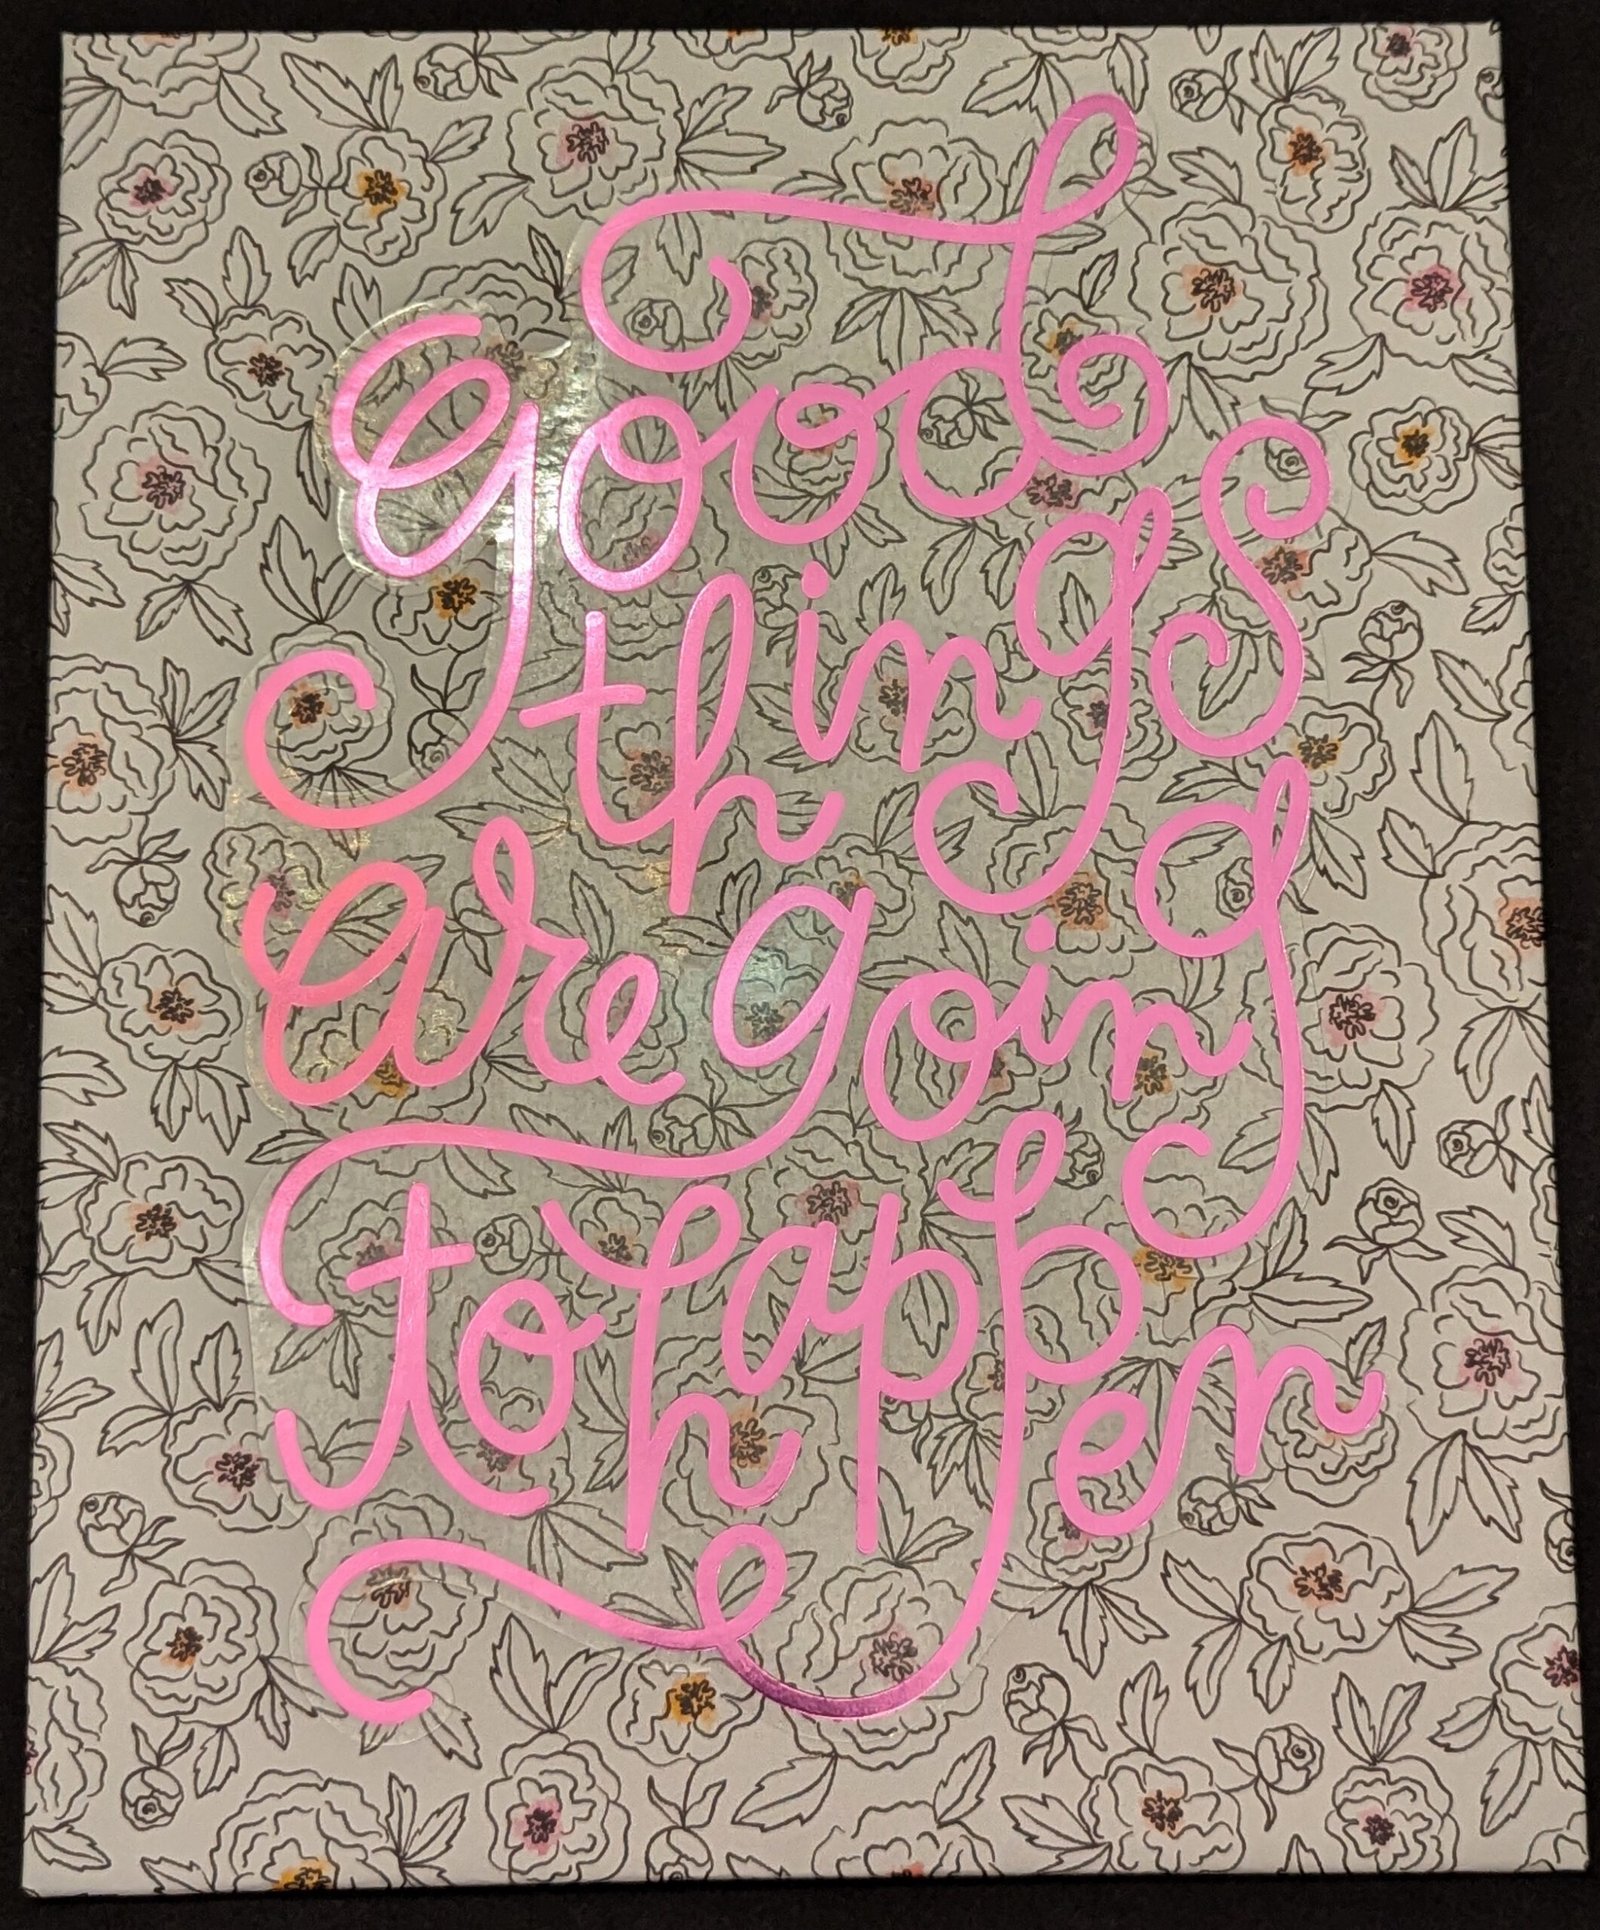 Good
things
are going
to happen